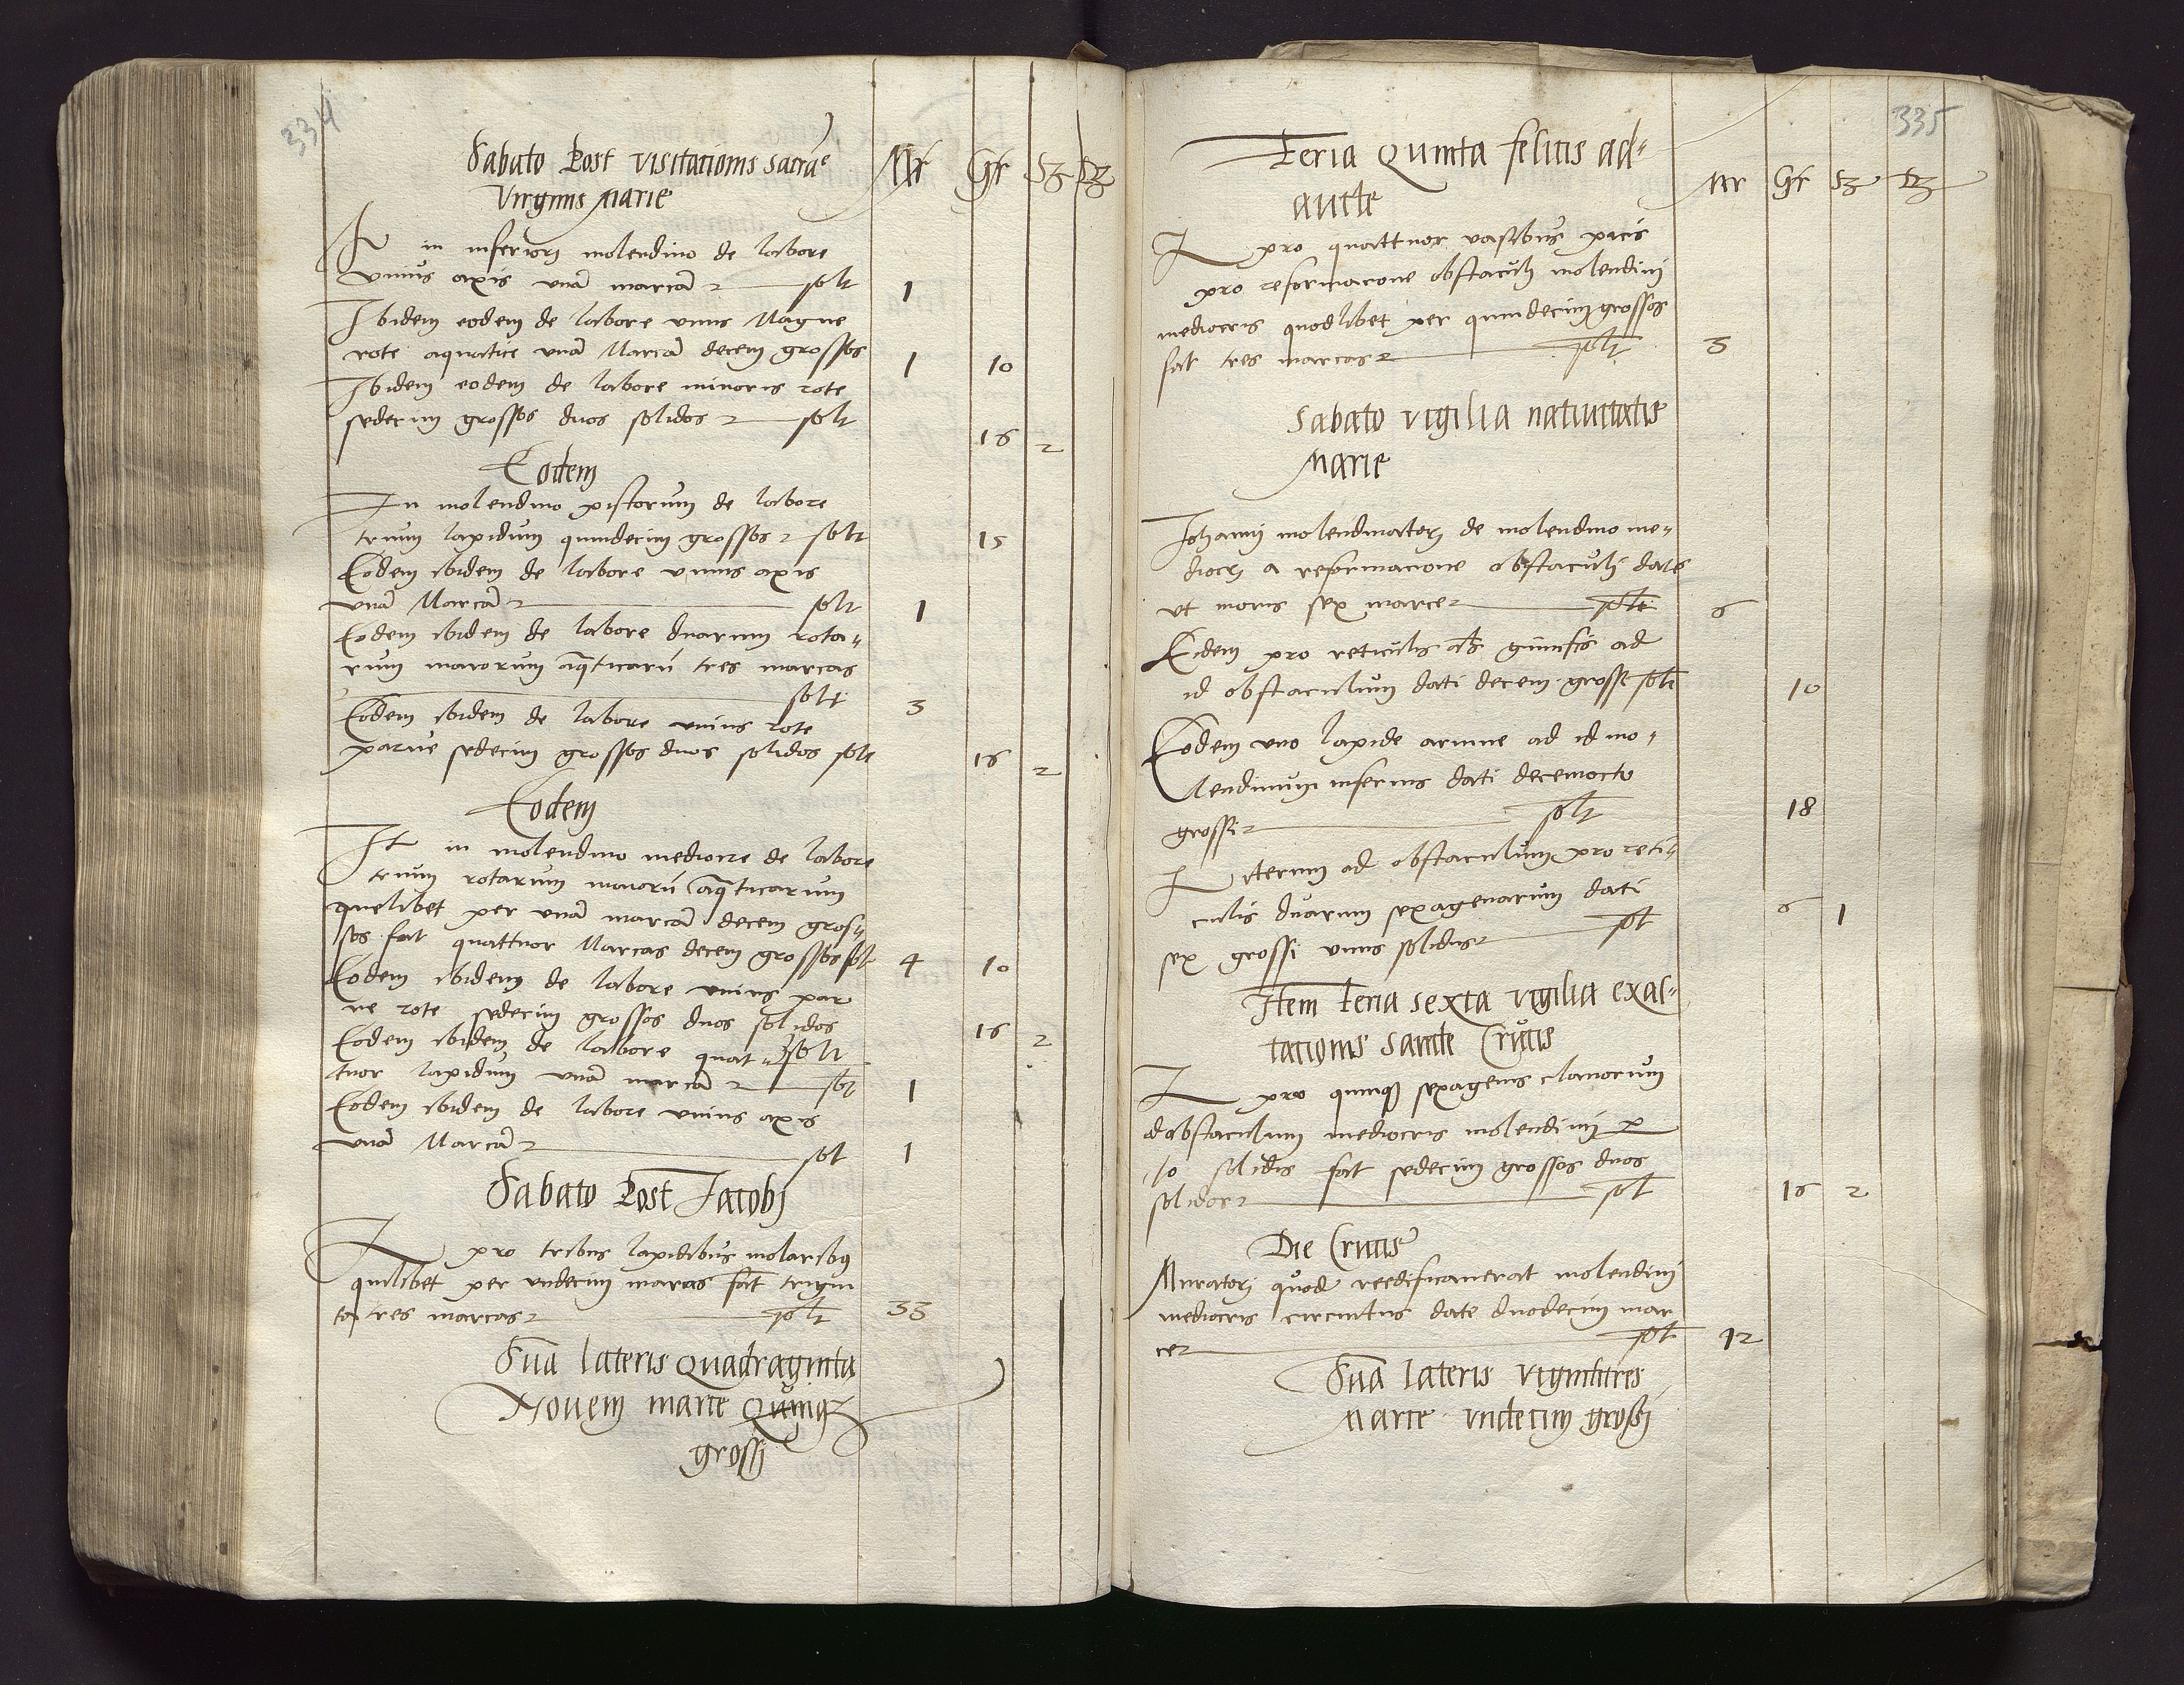 334
Sabato Post visitationis sacrae
Virginis Marie
Mr Gr Sz Dz
It in inferiori molendino de labore
unius axis unā marcā solt 1
Ibidem eodem de labore unius Magne
rote aquatice unā Marcā decem grossos 1 10
Ibidem eodem de labore minoris rote
sedecim grossos duos solidos solt 16 2
Eodem
In molendino pistorum de labore
trium lapidum quindecim grossos solt 15
Eodem ibidem de labore unius axis
unā Marcā solt 1
Eodem ibidem de labore duarum rota„
rum maiorum aqticarū tres marcas
solt 3
Eodem ibidem de labore unius rote
parve sedecim grossos duos solidos solt 16 2
Eodem
It in molendino mediocre de labore
trium rotarum maiorū aqticarum
quelibet per unā marcā decem gros„
sos fat quattuor Marcas decem grossos solt 4 10
Eodem ibidem de labore unius par
ve rote sedecim grossos duos solidos 16 2
Eodem ibidem de labore quat„ solt
tuor lapidum unā marcā solt 1
Eodem ibidem de labore unius axis
unā Marcā sol 1
Sabato Post Jacobi
It pro tribus lapidibus molaribus
quilibet per undecim marcas fat trigin
ta tres marcas solt 33
Suā lateris Quadraginta
Novem marce Quinqz
grossi
335
Feria Quinta felicis ad„
aucte
Mr Gr Sz Dz
It pro quattuor vasibus picis
pro reformacone obstaculi molendini
mediocris quodlibet per quindecim grossos
fat tres marcas solt 3
Sabato vigilia nativitatis
Marie
Johanni molendinatori de molendino me„
diocri a reformacione obstaculi date
ut moris sex marce solt 6
Eidem pro reticulis ad
id obstaculum dati decem grossi solt 10
Eodem uno lapide arvine ad id mo„
lendinum inferius dati decemocto
grossi solt 18
It iterum ad obstaculum pro reti„
culis duarum sexagenarum dati
sex grossi unus solidus sol 6 1
Item feria sexta vigilia exal„
tationis sancte Crucis
It pro quinqz sexagenis clavorum
ad obstaculum mediocris molendini p
10 solidis fat sedecim grossos duos
solidos sol 16 2
Die Crucis
Muratori quod reedificaverat molendini
mediocris circuitus date duodecim mar
ce sol 12
Suā lateris vigintitres
Marce undecim grossi